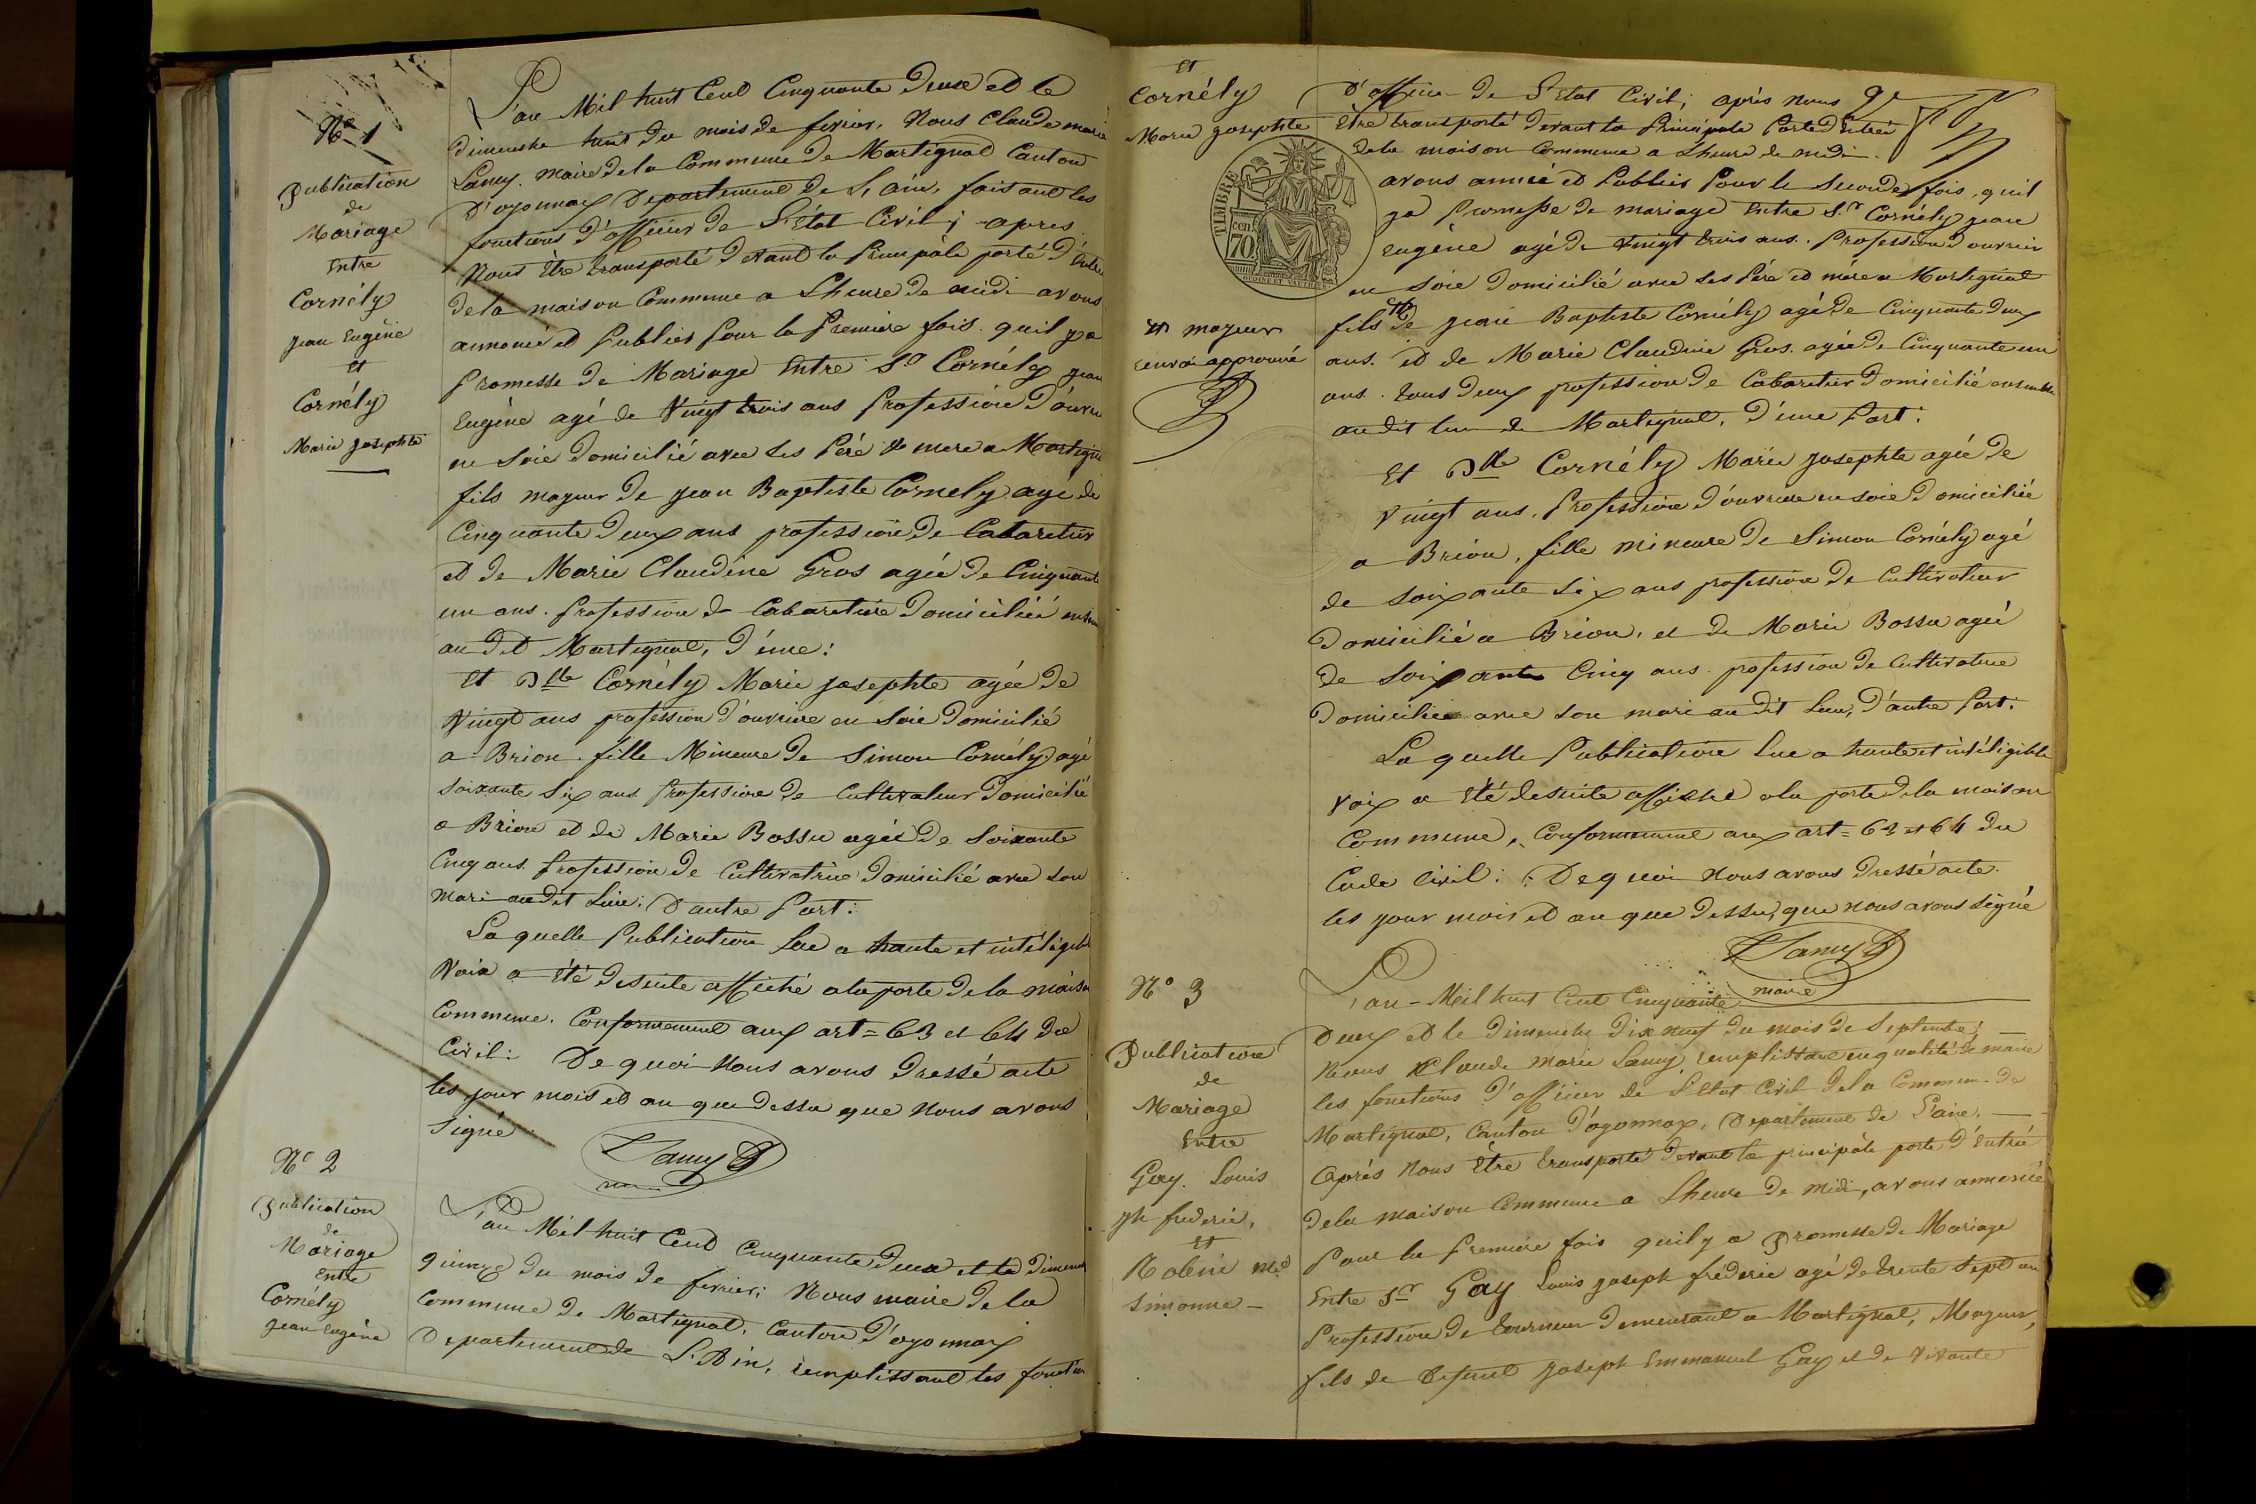 L'an Mil huit Cent Cinquante Deux et le
Nº 1
dimenche huit du mois de fevrier, Nous Claude marie
Lamy, maire de la Commune de Martignat Canton
Publication
de
Mariage
Entre
Cornély
jean Eugène
et
Cornély
Marie josephte
D'oyonnax Departement de L'ain, faisant les
fonctions d'officier de L'état Civil; apres
Nous être transporté devant la Principale porte d'Entré
de la maison Commune a Lheure de midi avons
annoncé et Publier Pour la Premiere fois quil ya
Promesse de Mariage Entre Sr Cornély jean
Eugène agé de Vingt trois ans Profession d'ouvrie
en Soie Domicilié avec ses Péré & mere a Martigna
fils mageur de jean Baptiste Cornely agé de
Cinquante Deux ans profession de Cabaretier
et de Marie Claudine Gros agée de Cinquante
un ans. Profession de Cabaretiere Domiciliée
au dit Martignat, D'une:
Et Dlle Cornély Marie josephte agée de
Vingt ans profession d'ouvriere en Soie Domicilié
a Brion. fille Mineure de Simon Cornély agé
Soixante Six ans Profession de Cultivateur Domicilié
a Brion et de Marie Bossu agée de Soixante
Cinq ans. Profession de Cultivatrice Domicilié avec son
mari au dit Lieu: D'autre Part:
La quelle Publication Lue a haute et intéligible
Voix a Eté desuite affiché a la porte de la maison
Commune. Conformement aux art= 63 et 64 du
Civil: De quoi Nous avons Dressé acte
les jour mois et an que dessu que Nous avons
Signé
Lamy
Nº 2
Publication
de
Mariage
Entre
Cornély
jean Eugène
L'an Mil huit Cent Cinquante Deux et le dimenche
quinze du mois de fevrier; Nous maire de la
Commune de Martignat, Canton d'oyonnax
Departement de L'Ain, remplissant les fonction
Et
Cornély
Marie josephte
D'officier de L'Etat Civil; après Nous
Etre transporté devant la Principale Porte D'Entrée
de la maison Commune a Lheure de midi.
TIMBRE
70 cen.
avons annocé et Publier Pour la Seconde fois, quil
ya Promesse de mariage Entre Sr Cornély jean
Eugène agé de Vingt trois ans. Profession d'ouvrier
en Soie Domicilié avec ses Pére et mére a Martignat
fils de jean Baptiste Cornély agé de Cinquante Deux
mageur
renvoi approuvé
ans. et de Marie Claudine Gros. agée de Cinquante un
ans. tous Deux profession de Cabaretier Domicilié ensemble
au dit lieu de Martignat, D'une Part:
Et Dlle Cornély Marie josephte agée de
Vingt ans. Profession d'ouvriere en Soie Domiciliée
a Brion, fille mineure de Simon Cornély agé
de Soixante Six ans profession de Cultivateur
Domicilié a Brion, et de Marie Bossu agée
de Soixante Cinq ans. profession de Cultivatrice
Domiciliée avec son mari au dit Lieu, D'autre Part:
La quelle Publication Lue a haute et intéligible
Voix a Eté desuite affiché a la porte de la maison
Commune, Conformement aux art= 63 et 64 du
Code Civil: De quoi Nous avons Dressé acte
les jour mois et an que Dessu, que Nous avons Signé
Lamy
maire
Nº 3
Publication
de
Mariage
Entre
Gay. Louis
jh frederic,
et
Robin
Simonne
L'an Mil huit Cent Cinquante
Deux et le Dimenche Dix neuf du mois de Septembre;
Nous Claude Marie Lamy, remplissant en qualité de maire
les fonctions d'officier de L'Etat Civil de la Commune de
Martignat, Canton d'oyonnax, Departement de L'ain.
Après Nous Etre transporté devant la principale porte d'Entrée
de la maison Commune a Lheure de midi, avons annoncé
Pour la Premiere fois quil y a Promesse de Mariage
Entre Sr Gay Louis joseph fréderic agé de trente Sept an
Profession de tourneur Demeurant a Martignat, Mageur,
fils de Defunt joseph Emmanuel Gay et de Vivante